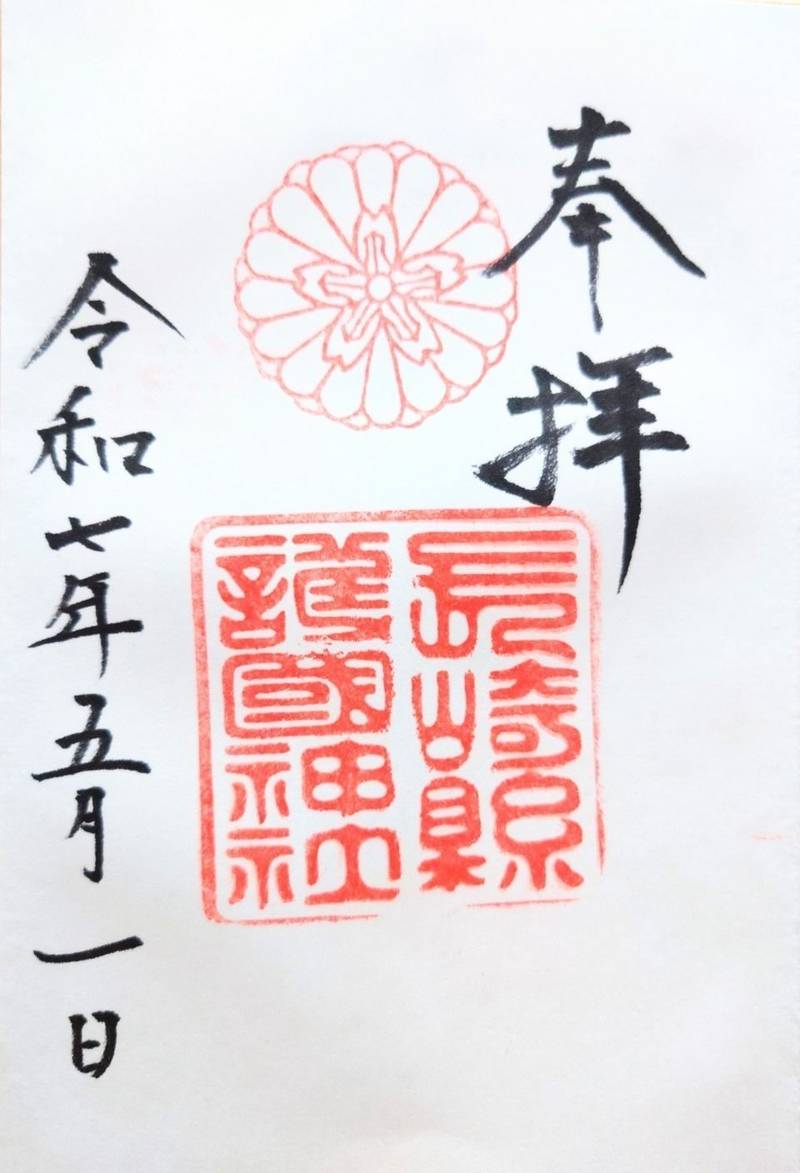 奉拝
長崎縣
護國神社
令和七年五月一日